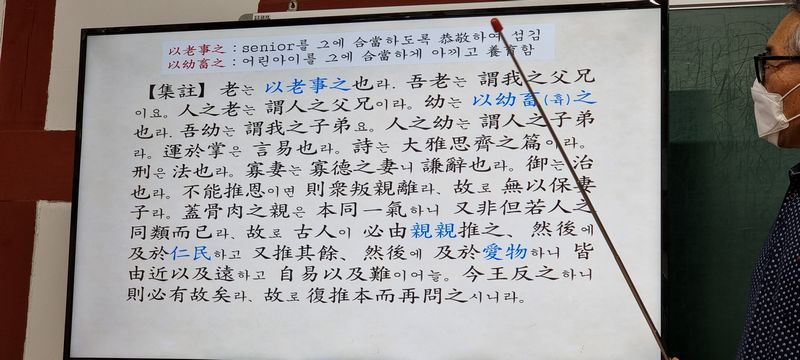 以老事之 : senior를 그에 合當하도록 恭敬하여 섬김
以幼畜之 : 어린아이를 그에 合當하게 아끼고 養育함
【集註】 老는 以老事之也라. 吾老는 謂我之父兄
이요. 人之老는 謂人之父兄이라. 幼는 以幼畜(휵)之
也라. 吾幼는 謂我之子弟요. 人之幼는 謂人之子弟
라. 運於掌은 言易也라. 詩는 大雅思齊之篇이라.
刑은 法也라. 寡妻는 寡德之妻니 謙辭也라. 御는 治
也라. 不能推恩이면 則衆叛親離라、故로 無以保妻
子라. 蓋骨肉之親은 本同一氣하니 又非但若人之
同類而已라、故로 古人이 必由親親推之、然後에
及於仁民하고 又推其餘、然後에 及於愛物하니 皆
由近以及遠하고 自易以及難이어늘. 今王反之하니
則必有故矣라、故로 復推本而再問之시니라.